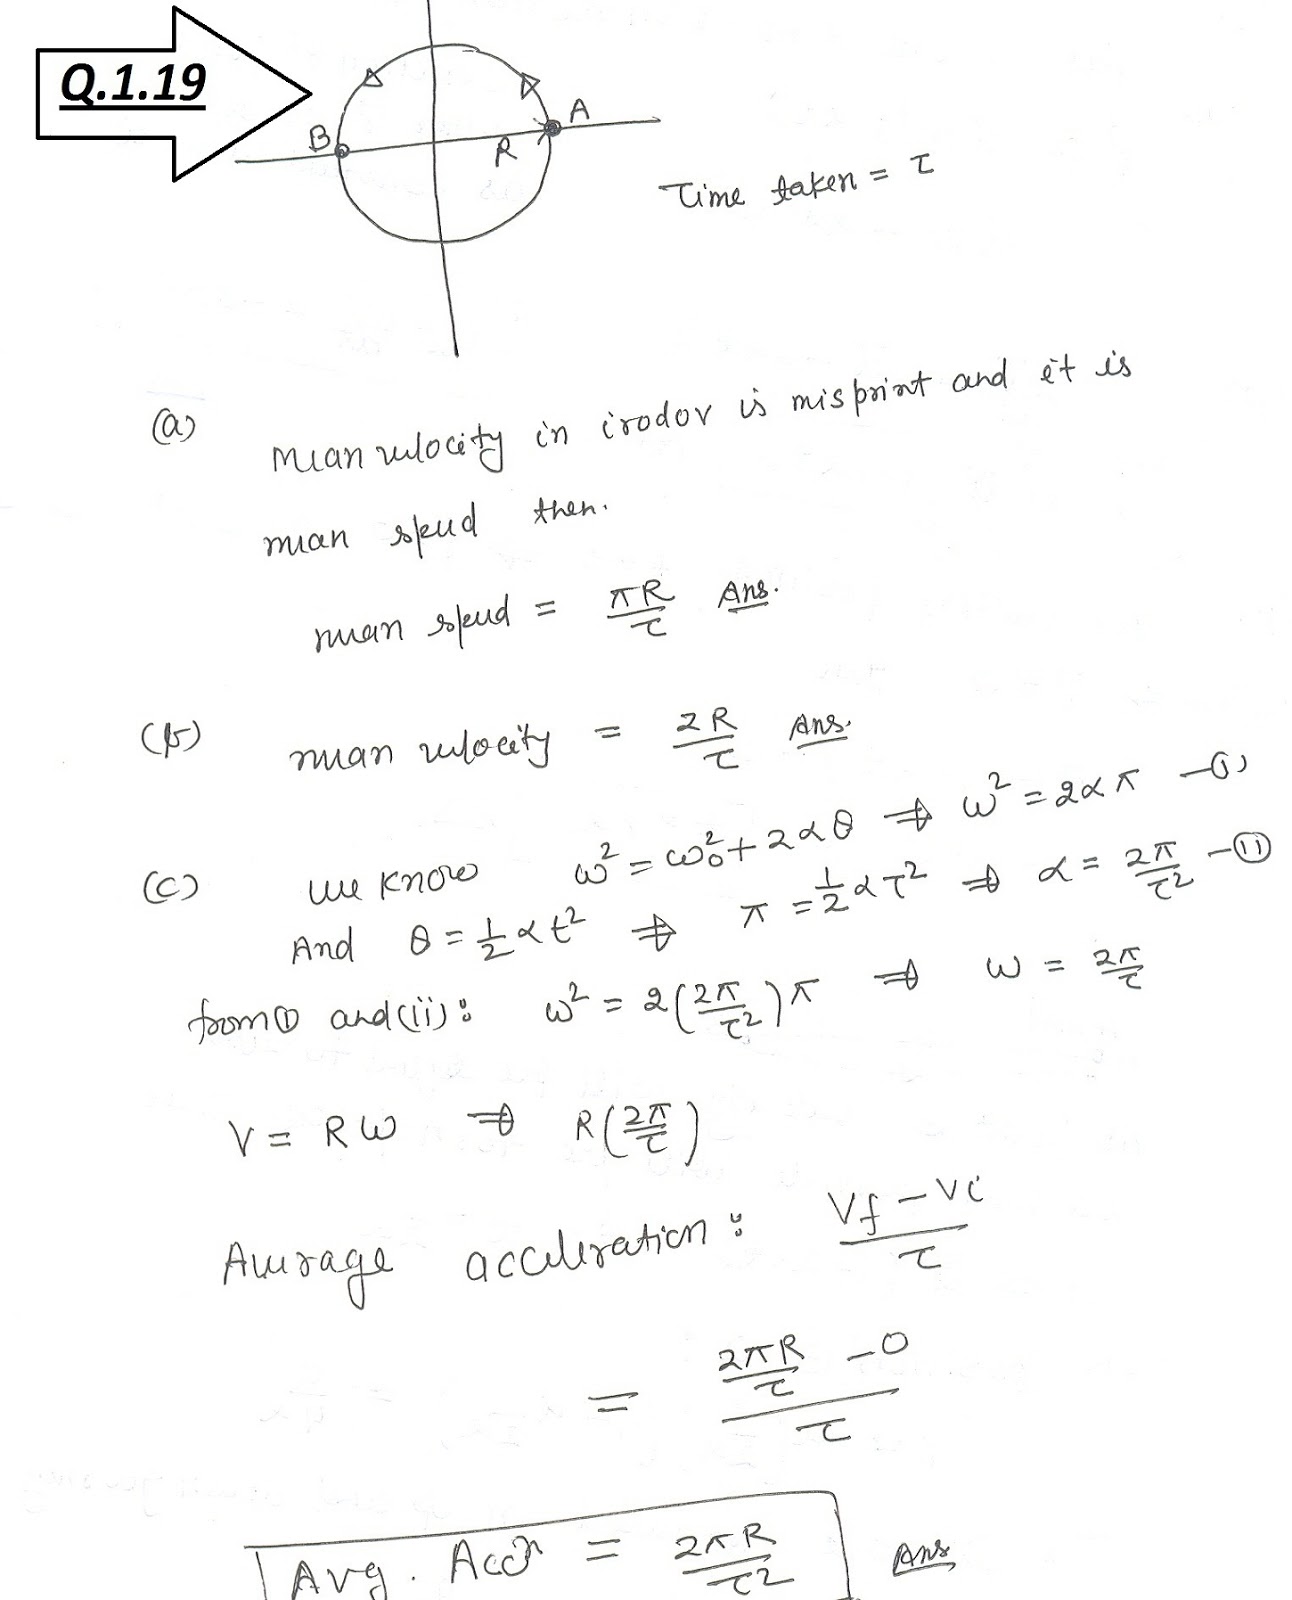 Q.1.19
A
B
R
Time taken = τ
(a)
Mean velocity in irodov is misprint and it is
mean speed then.
mean speed = πR/τ Ans.
(b) mean velocity = 2R/τ Ans.
(c) we know ω² = ω₀² + 2αθ ⇒ ω² = 2απ —(i)
And θ = ½αt² ⇒ π = ½ατ² ⇒ α = 2π/τ² —(ii)
from (i) and (ii): ω² = 2(2π/τ²)π ⇒ ω = 2π/τ
V = Rω ⇒ R(2π/τ)
Average acceleration: (Vf - Vi)/τ
= (2πR/τ - 0)/τ
Avg. Accn = 2πR/τ² Ans